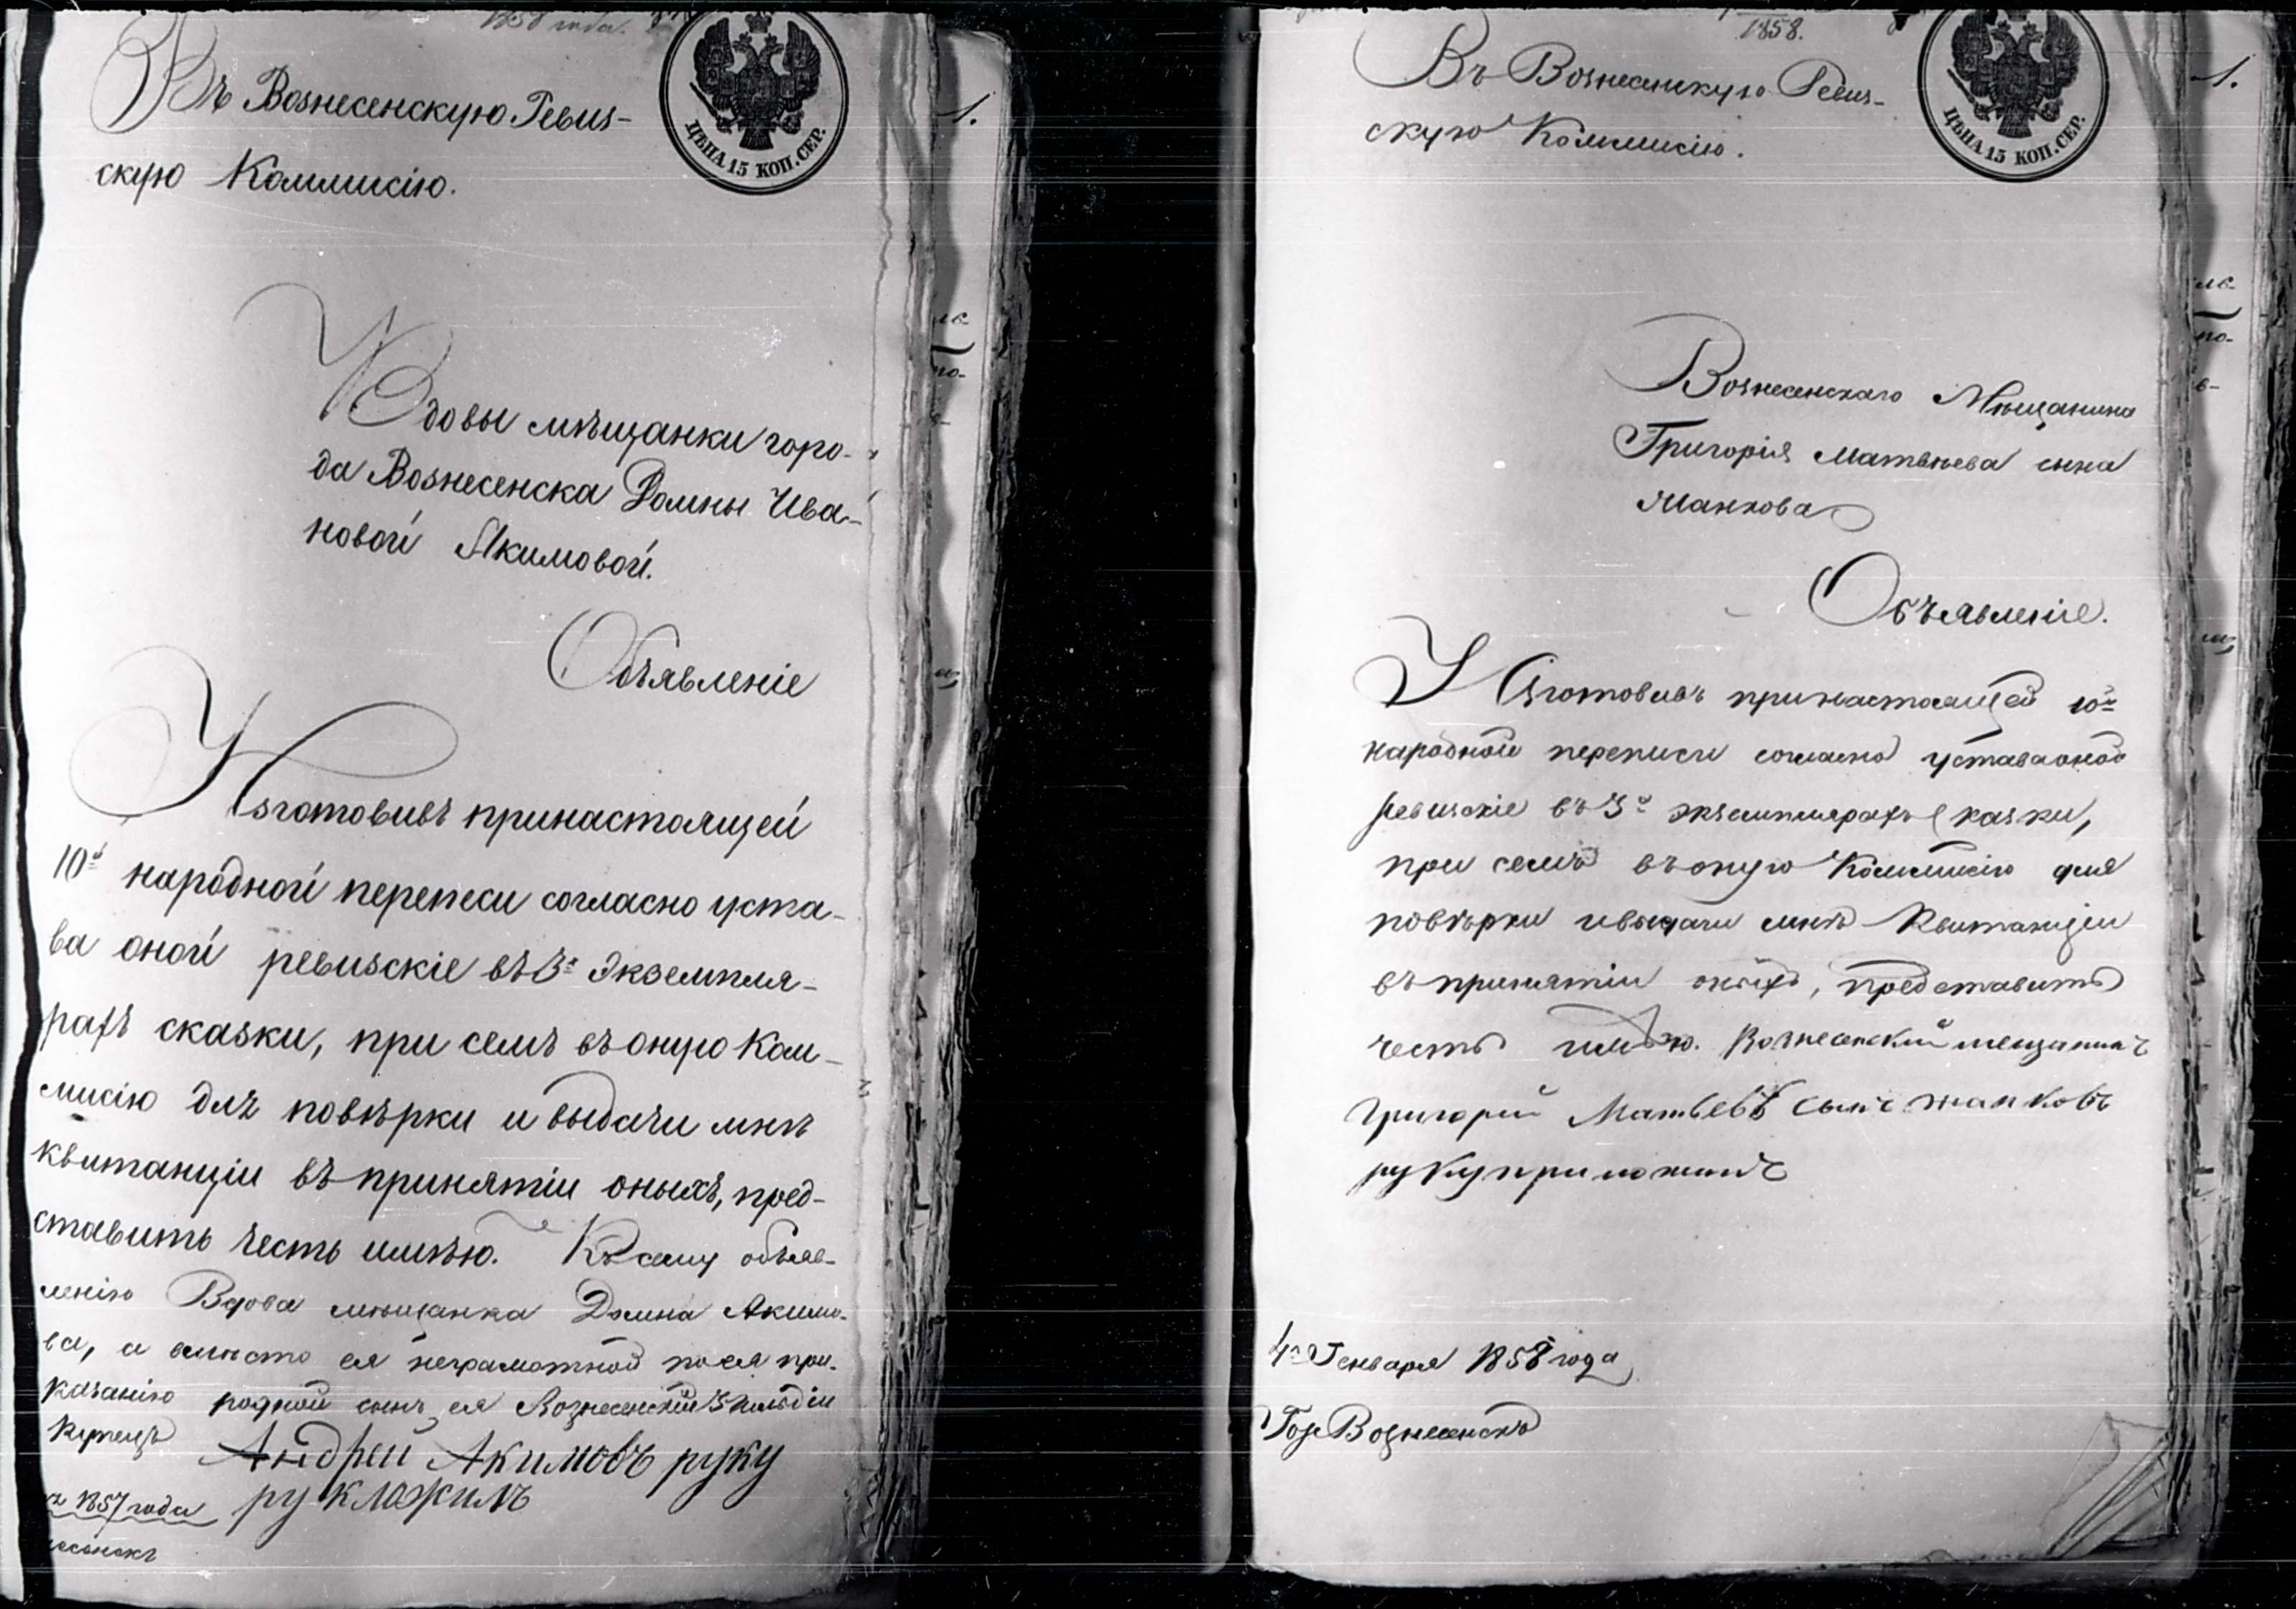 1858 года.
Въ Вознесенскую Ревиз-
скую Коммисію.
ЦѢНА 15 КОП. СЕР.
1.
Вдовы мѣщанки горо-
да Вознесенска Домны Ива-
новой Якимовой.
Объявленіе
Изготовивъ принастоящей
10й народной переписи согласно уста-
ва оной ревизскіе въ 3х экземпля-
рахъ сказки, при семъ въ оную Ком-
мисію для повѣрки и выдачи мнѣ
квитанціи въ принятіи оныхъ, пред-
ставить честь имѣю. Къ сему объяв-
ленію Вдова мѣщанка Домна Акимо-
ва, а вмѣсто ея неграмотной по ея при-
казанію родной сынъ ея Вознесенскій 3 гильдіи
Купецъ Андрей Акимовъ руку
руклажилъ
1857 года
1858.
Въ Вознесенскую Ревиз-
скую Коммисію.
ЦѢНА 15 КОП. СЕР.
1.
Вознесенскаго Мѣщанина
Григорія Матвѣева сына
Манкова
Объявленіе.
Изготовивъ принастоящей 10й
народной переписи согласно устава оной
ревизскіе въ 3х экземплярахъ сказки,
при семъ въ оную Коммисію для
повѣрки и выдачи мнѣ Квитанціи
въ принятіи оныхъ, представить
честь имѣю. Вознесенскій мещанинъ
Григорий Матвевъ сынъ манковъ
руку приложилъ
4го Генваря 1858 года
Гор Вознесенскъ